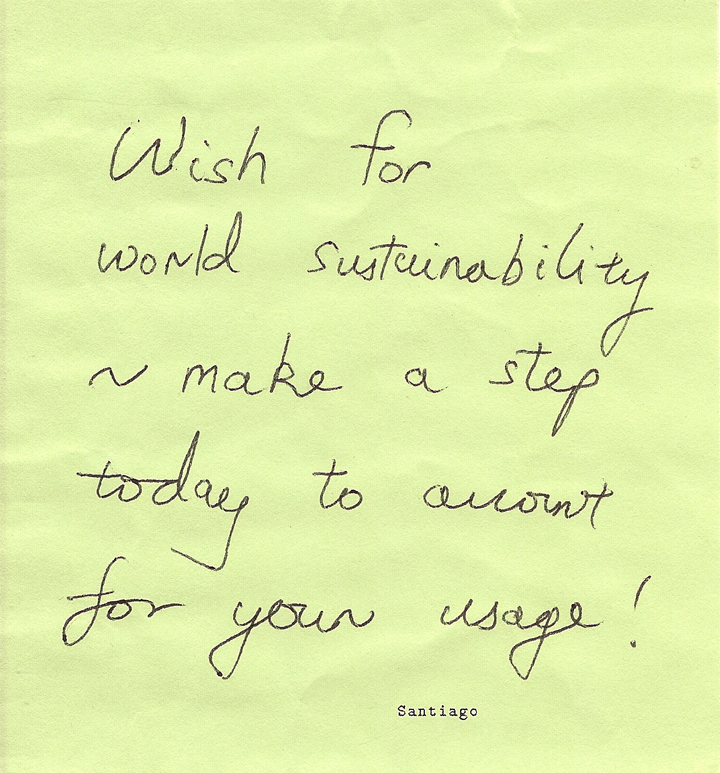 Wish for
world sustainability
~ make a step
today to account
for your usage!
Santiago